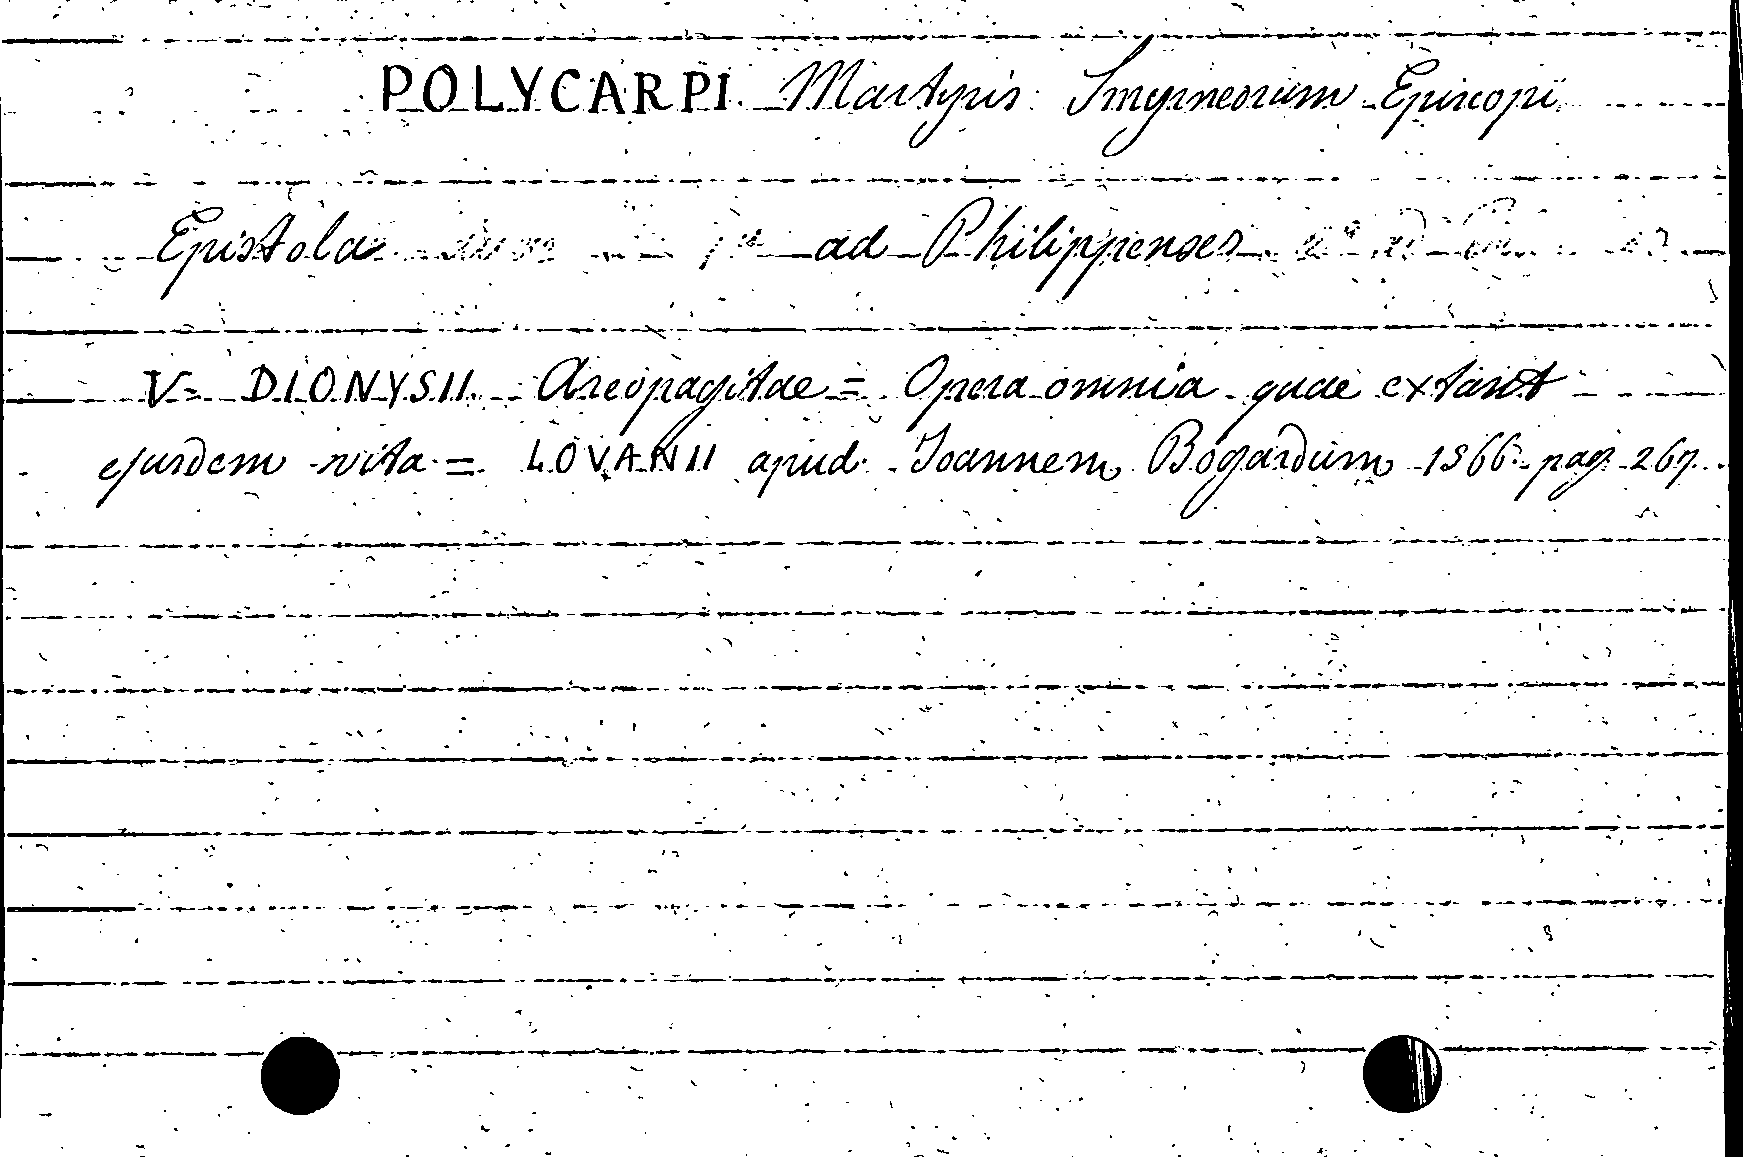 POLYCARPI Martyris Smyrneorum Episcopi
Epistola ad Philippenses
V= DIONYSII Areopagitae = Opera omnia quae extant
ejusdem vita = LOVANII apud Joannem Bogardum 1566 pag 267